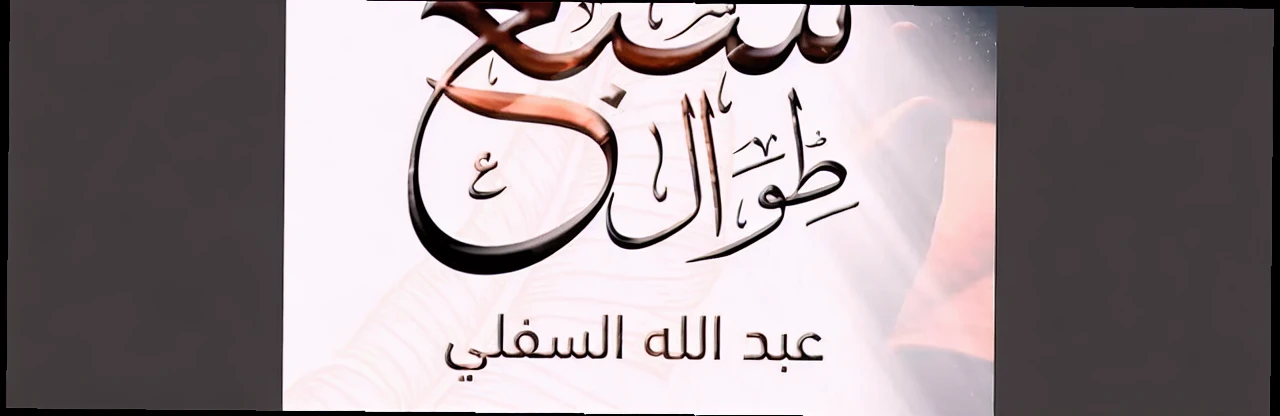 سبع
طِوَال
عبد الله السفلي